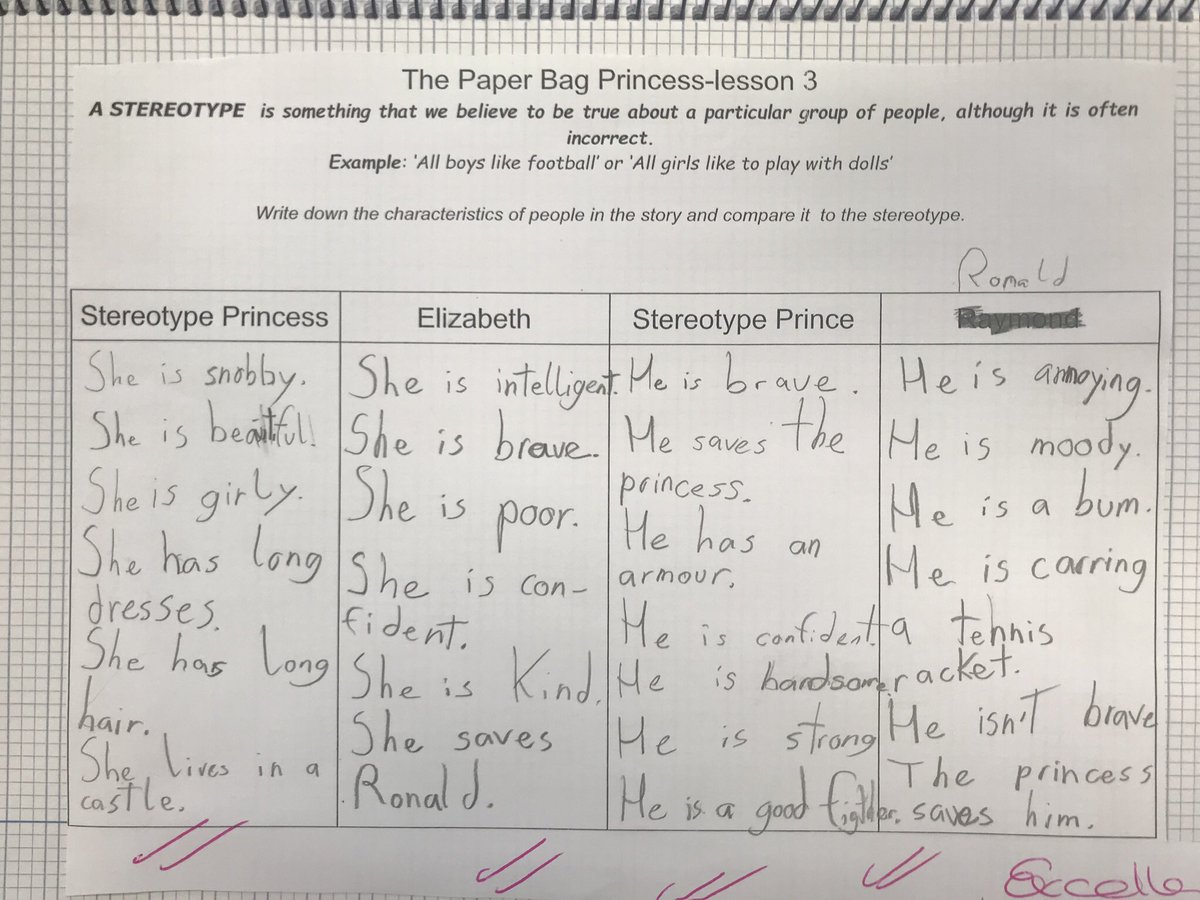 The Paper Bag Princess-lesson 3
A STEREOTYPE is something that we believe to be true about a particular group of people, although it is often
incorrect.
Example: 'All boys like football' or 'All girls like to play with dolls'
Write down the characteristics of people in the story and compare it to the stereotype.
Ronald
Stereotype Princess
She is snobby.
She is beautiful!
She is girly.
She has long
dresses.
She has long
hair.
She lives in a
castle.
Elizabeth
She is intelligent.
She is brave.
She is poor.
She is con-
fident.
She is kind.
She saves
Ronald.
Stereotype Prince
He is brave.
He saves the
princess.
He has an
armour.
He is confident.
He is handsome.
He is strong
He is a good fighter.
Raymond
He is annoying.
He is moody.
He is a bum.
He is carring
a tennis
racket.
He isn't brave
The princess
saves him.